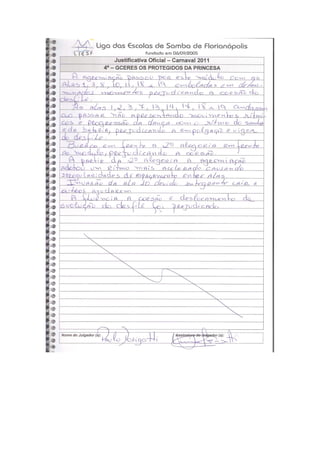 Liga das Escolas de Samba de Florianópolis
Fundada em 05/09/2005
Justificativa Oficial – Carnaval 2011
4º – GCERES OS PROTEGIDOS DA PRINCESA
A agremiação passou por este módulo com as
Alas 1, 3, 8, 10, 11, 18 e 19 emboladas em deter-
minados momentos prejudicando a coesão do
desfile.
As alas 1, 2, 3, 7, 13, 14, 17, 18 e 19 andaram
ao passar não apresentando movimentos rítmi-
cos e progressão da dança com o ritmo do samba
e da bateria, prejudicando a empolgação e vigor
do desfile.
Buraco em frente a 2ª alegoria em frente
ao módulo, prejudicando a coesão.
A partir da 2ª alegoria a agremiação
adotou um ritmo mais acelerado causando
irregularidades de espaçamento entre alas.
Invasão da ala 20 devido integrante cair e
outros ajudarem.
A fluência a coesão e deslocamento da
evolução do desfile foi prejudicado.
Nome do Julgador (a):
Assinatura do Julgador (a):